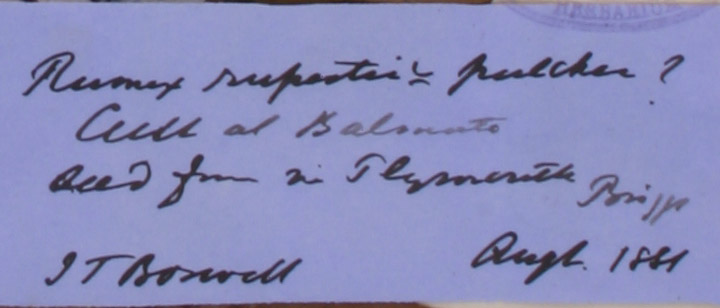 HERBARIUM
Rumex rupestris pulcher ?
Cult at Balmuto
seed from n Plymouth Briggs
I T Boswell Augt. 1881